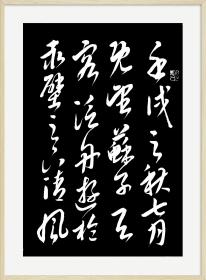 壬戌之秋七月
既望蘇子與
客泛舟遊於
赤壁之下清風